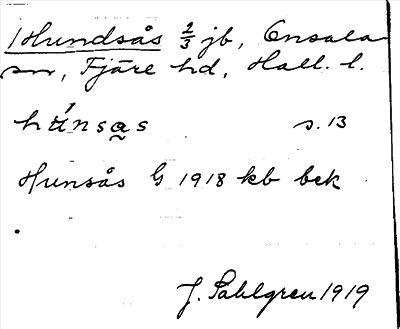 Hundsås 2/3 jb, Onsala
sn, Fjäre hd, Hall. l.
húnsa̰s s. 13
Hunsås G 1918 kb bek
J. Sahlgren 1919